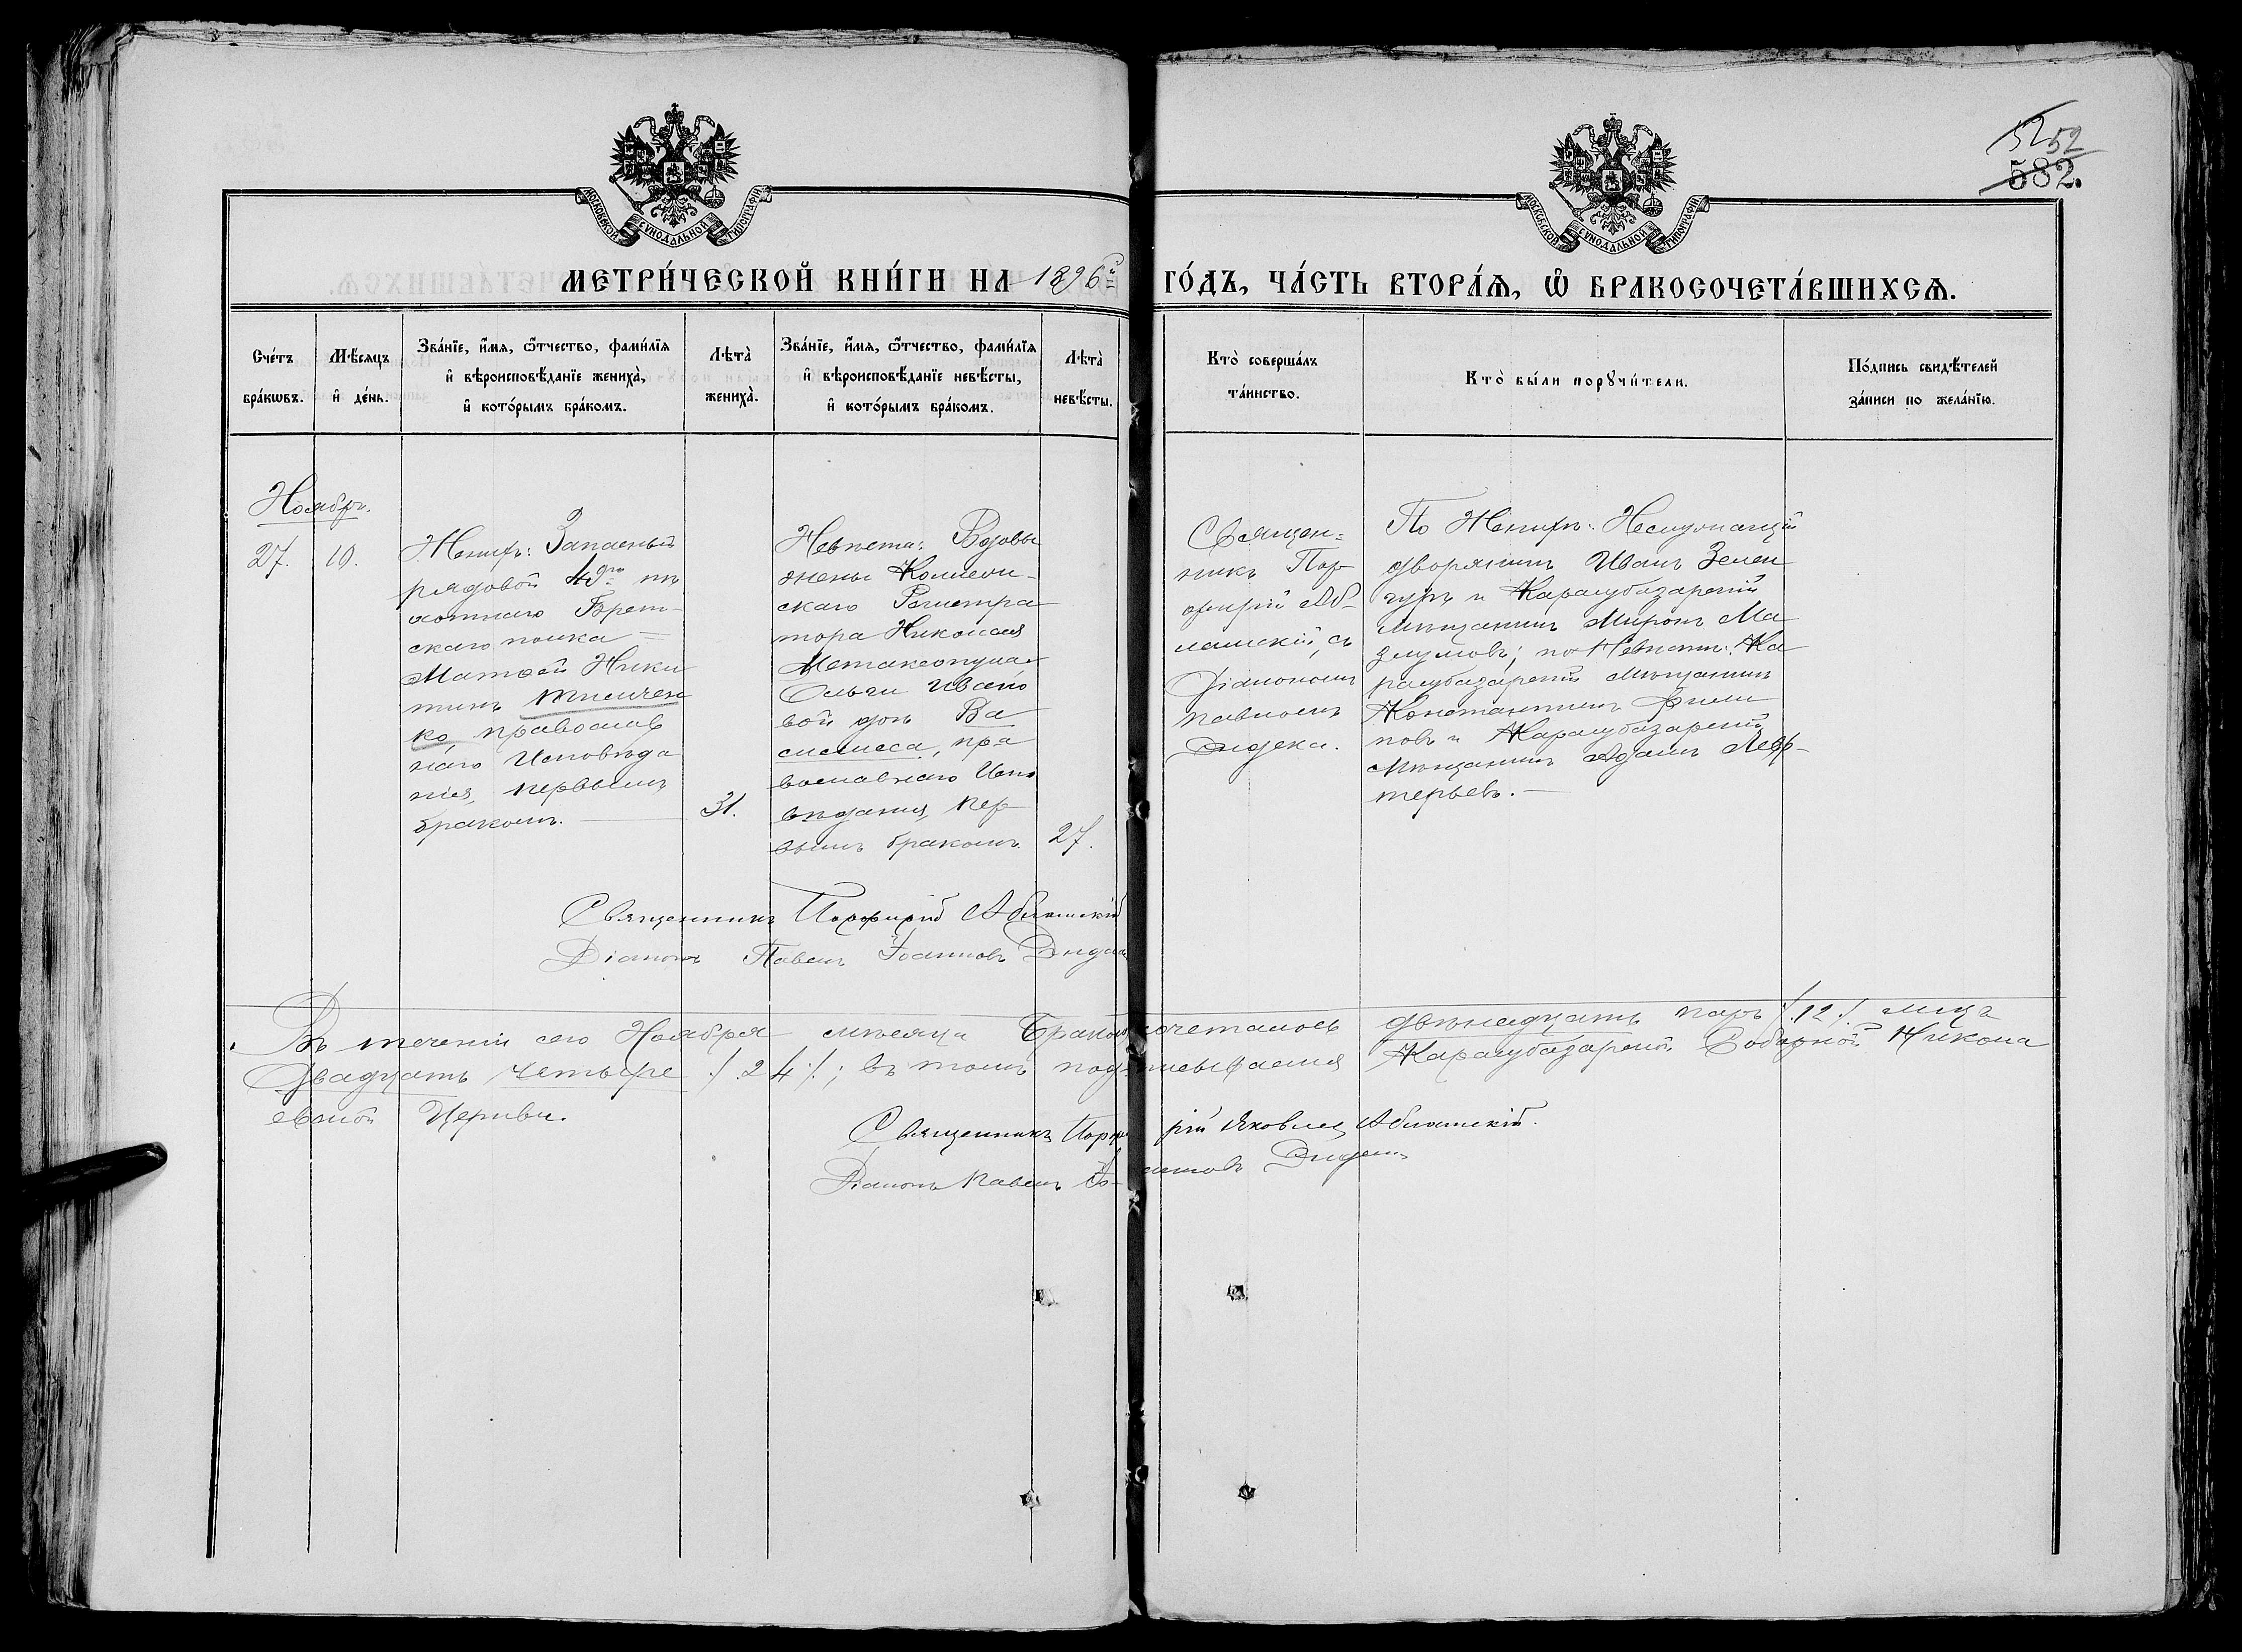 52
52
582.
МОСКОВСКОЙ СѴНОДАЛЬНОЙ ТИПОГРАФІИ
МОСКОВСКОЙ СѴНОДАЛЬНОЙ ТИПОГРАФІИ
МЕТРИ́ЧЕСКОЙ КНИ́ГИ НА 1896й ГО́ДЪ, ЧА́СТЬ ВТОРА́Ѧ, Ѽ БРАКОСОЧЕТА́ВШИХСѦ.
Сче́тъ
бра́кѡвъ.
Мѣ́сяцъ
и де́нь.
Зва́нїе, и́мѧ, ѻ́тчество, фами́лїѧ
и вѣроисповѣ́данїе жениха̀,
и кото́рымъ бра́комъ.
Лѣта̀
жениха̀.
Зва́нїе, и́мѧ, ѻ́тчество, фами́лїѧ
и вѣроисповѣ́данїе невѣ́сты,
и кото́рымъ бра́комъ.
Лѣта̀
невѣ́сты.
Кто̀ соверша́лъ
та́инство.
Кто̀ бы́ли порꙋчи́тели.
По́дпись свидѣ́телей
за́писи по жела́нїю.
Ноябрь.
27.
10.
Женихъ: Запасный
рядовой 49го пѣ
хотнаго Брест-
скаго полка
Матѳей Ники
тинъ Тисичен
ко православ
наго Исповѣда
нія, первымъ
бракомъ.
31.
Невѣста: Вдовы
жены Коллежи-
скаго Регистра
тора Николая
Метаксопула
Ольги Ивано
вой дочь Ва
силиса, пра
вославнаго Испо
вѣданія, пер
вымъ бракомъ.
27.
Священ=
никъ Пор-
фирій Аб-
ламскій, съ
Діакономъ
Павломъ
По Женихѣ: Неслужащій
дворянинъ Иванъ
и Карасубазарскій
мѣщанинъ Миронъ Ма
злумовъ; по Невѣстѣ: Ка
расубазарскій мѣщанинъ
Константинъ Фили
повъ и Карасубазарскій
мѣщанинъ Адамъ Лефтерьевъ.
Священникъ Порфирій Абламскій
Діаконъ Павелъ Іоанновъ
Въ теченіи сего Ноября мѣсяца Бракосочеталось двѣнадцать паръ /.12./ лицъ
двадцать четыре /.24./; въ томъ подписываемся Карасубазарской Соборной Никола
евской Церкви.
Священникъ Порфирій Яковлевъ Абламскій.
Діаконъ Павелъ Іоанновъ